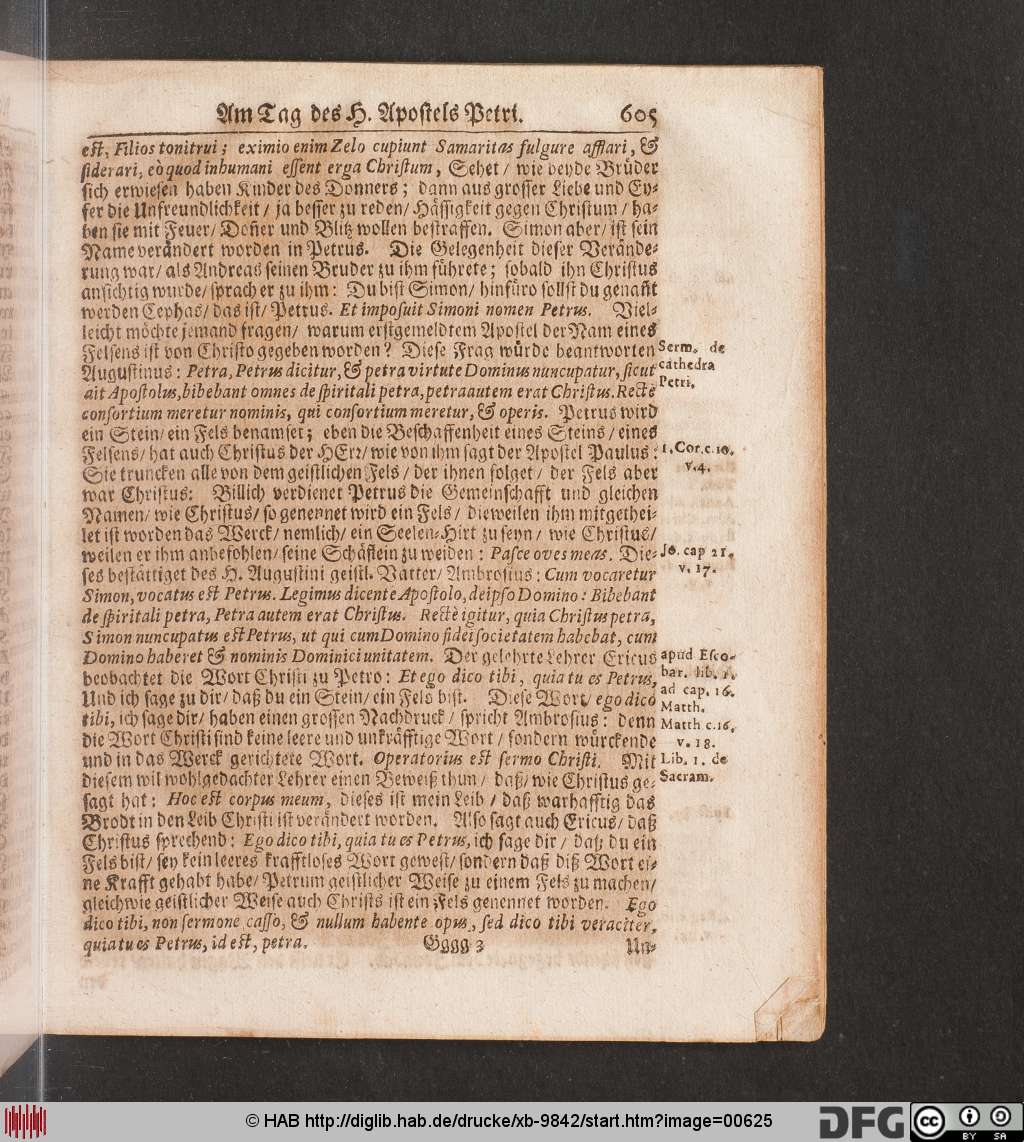 Am Tag des H. Apostels Petri. 605
est, Filios tonitrui; eximio enim Zelo cupiunt Samaritas fulgure afflari, &
siderari, eò quod inhumani essent erga Christum, Sehet / wie beyde Brüder
sich erwiesen haben Kinder des Donners; dann aus grosser Liebe und Ey-
fer die Unfreundlichkeit / ja besser zu reden / Hässigkeit gegen Christum / ha-
ben sie mit Feuer / Doñer und Blitz wollen bestraffen. Simon aber / ist sein
Name verändert worden in Petrus. Die Gelegenheit dieser Verände-
rung war / als Andreas seinen Bruder zu ihm führete; sobald ihn Christus
ansichtig wurde / sprach er zu ihm: Du bist Simon / hinfüro sollst du genañt
werden Cephas / das ist / Petrus. Et imposuit Simoni nomen Petrus. Viel-
leicht möchte jemand fragen / warum erstgemeldtem Apostel der Nam eines
Felsens ist von Christo gegeben worden? Diese Frag würde beantworten
Augustinus: Petra, Petrus dicitur, & petra virtute Dominus nuncupatur, sicut
ait Apostolus, bibebant omnes de spiritali petra, petra autem erat Christus. Rectè
consortium meretur nominis, qui consortium meretur, & operis. Petrus wird
ein Stein / ein Fels benamset; eben die Beschaffenheit eines Steins / eines
Felsens / hat auch Christus der HErr / wie von ihm sagt der Apostel Paulus:
Sie truncken alle von dem geistlichen Fels / der ihnen folget / der Fels aber
war Christus: Billich verdienet Petrus die Gemeinschafft und gleichen
Namen / wie Christus / so genennet wird ein Fels / dieweilen ihm mitgethei-
let ist worden das Werck / nemlich / ein Seelen-Hirt zu seyn / wie Christus /
weilen er ihm anbefohlen / seine Schäflein zu weiden: Pasce oves meas. Die-
ses bestättiget des H. Augustini geistl. Vatter / Ambrosius: Cum vocaretur
Simon, vocatus est Petrus. Legimus dicente Apostolo, de ipso Domino: Bibebant
de spiritali petra, Petra autem erat Christus. Rectè igitur, quia Christus petra,
Simon nuncupatus est Petrus, ut qui cum Domino fidei societatem habebat, cum
Domino haberet & nominis Dominici unitatem. Der gelehrte Lehrer Ericus
beobachtet die Wort Christi zu Petro: Et ego dico tibi, quia tu es Petrus,
Und ich sage zu dir / daß du ein Stein / ein Fels bist. Diese Wort / ego dico
tibi, ich sage dir / haben einen grossen Nachdruck / spricht Ambrosius: denn
die Wort Christi sind keine leere und unkräfftige Wort / sondern würckende
und in das Werck gerichtete Wort. Operatorius est sermo Christi. Mit
diesem wil wohlgedachter Lehrer einen Beweiß thun / daß / wie Christus ge-
sagt hat: Hoc est corpus meum, dieses ist mein Leib / daß warhafftig das
Brodt in den Leib Christi ist verändert worden. Also sagt auch Ericus / daß
Christus sprechend: Ego dico tibi, quia tu es Petrus, ich sage dir / daß du ein
Fels bist / sey kein leeres krafftloses Wort gewest / sondern daß diß Wort ei-
ne Krafft gehabt habe / Petrum geistlicher Weise zu einem Fels zu machen /
gleichwie geistlicher Weise auch Christs ist ein Fels genennet worden. Ego
dico tibi, non sermone casso, & nullum habente opus, sed dico tibi veraciter,
quia tu es Petrus, id est, petra. Gggg 3 Un-
Serm. de
cathedra
Petri.
1. Cor. c. 10.
v. 4.
Jo. cap 21.
v. 17.
apud Esco-
bar. lib. 1.
ad cap. 16.
Matth.
Matth c. 16.
v. 18.
Lib. 1. de
Sacram.
© HAB http://diglib.hab.de/drucke/xb-9842/start.htm?image=00625
DFG
cc
BY SA